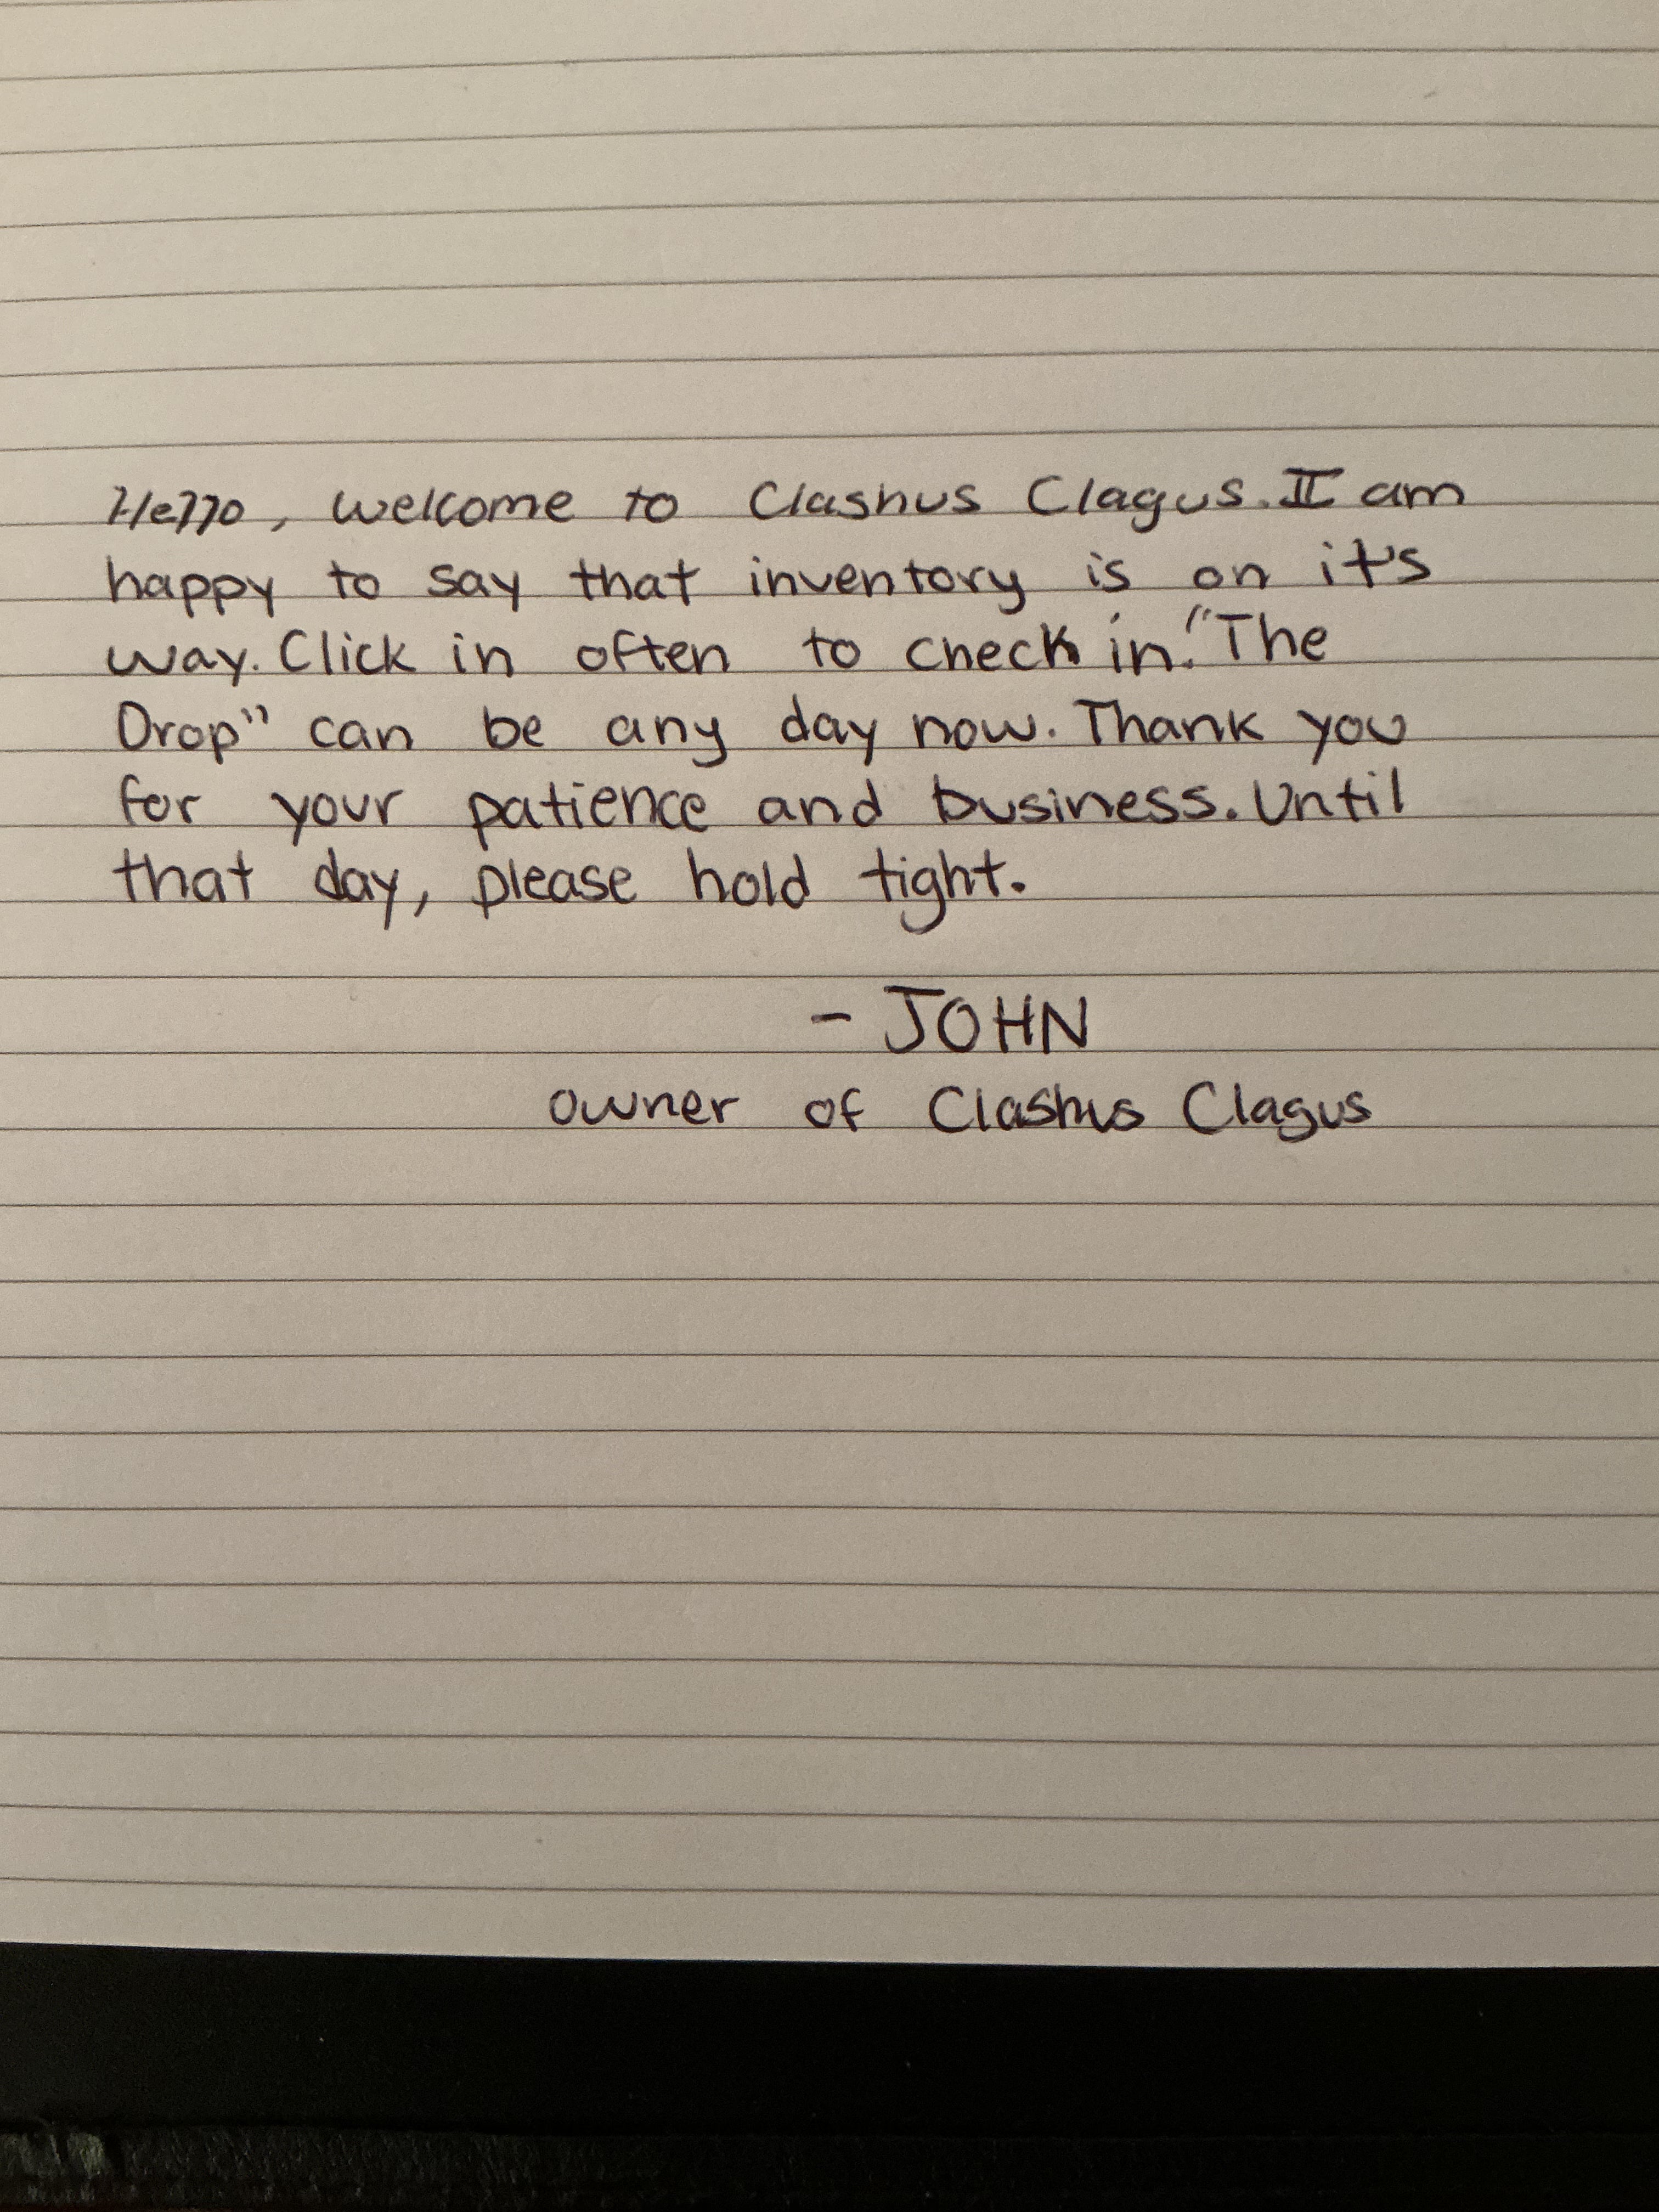 Hello, welcome to Clashus Clagus. I am
happy to say that inventory is on it's
way. Click in often to check in. "The
Drop" can be any day now. Thank you
for your patience and business. Until
that day, please hold tight.
- JOHN
owner of Clashus Clagus